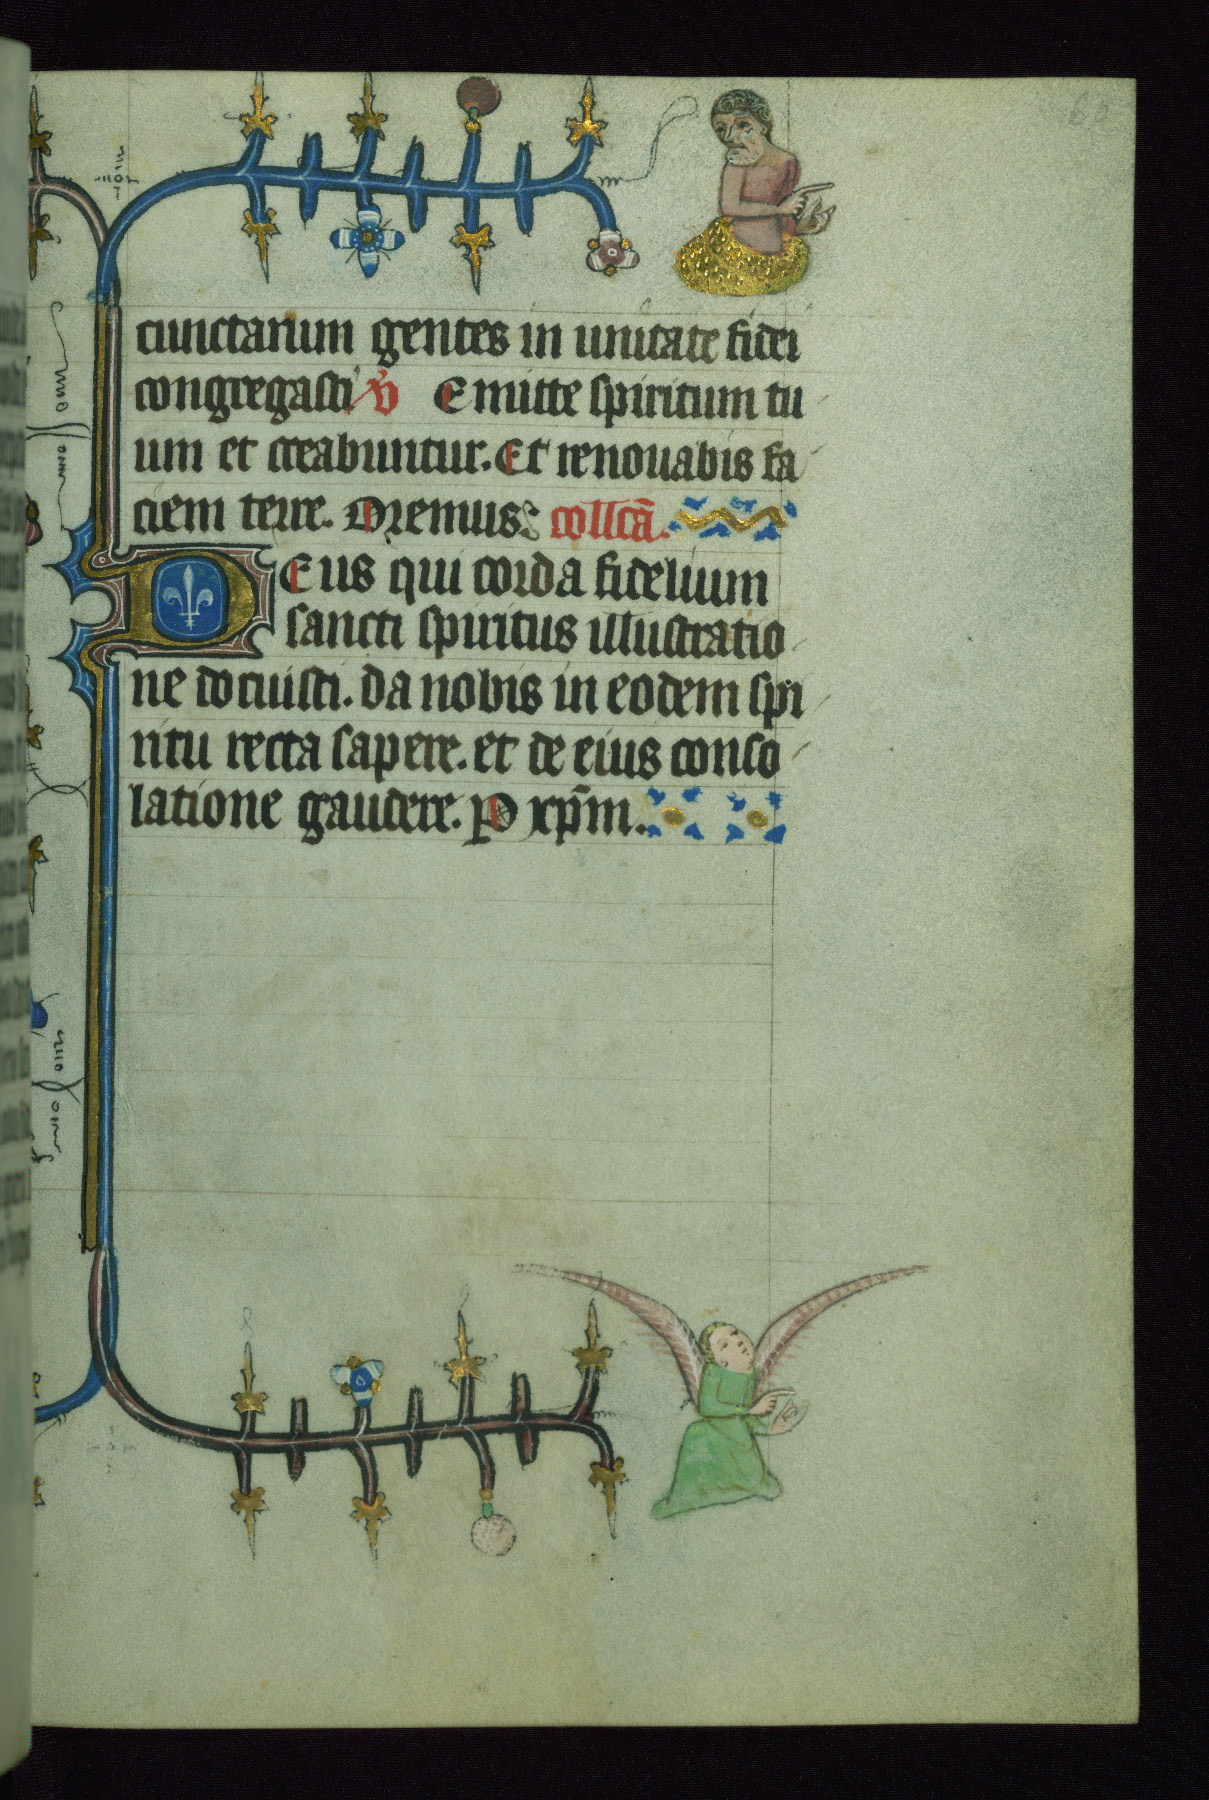 cunctarum gentes in unitate fidei
congregasti ℣ Emitte spiritum tu
um et creabuntur. Et renouabis fa
ciem terre. Oremus: collcā.
Deus qui corda fidelium
sancti spiritus illustratio
ne docuisti. da nobis in eodem spi
ritu recta sapere. et de eius conso
latione gaudere. P xp̄m.